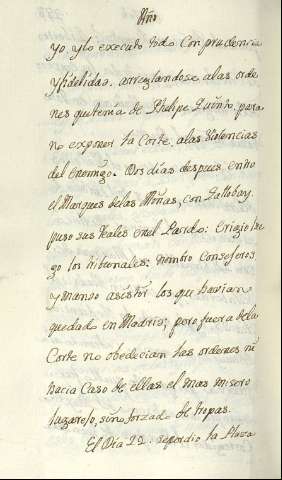 Año
yo, y lo executo todo con prudencia
y fidelidad, arreglandose a las orde
nes que tenia de Phelipe Quinto, para
no exponer la Corte, a las violencias
del enemigo. Dos días despues, entro
el Marques de las Minas, con Gallobay,
puso sus Reales en el Pardo: Erigio lue
go los tribunales: nombro consejeros
y mando asistir los que havian
quedado en Madrid; pero fuera de la
Corte no obedecian las ordenes ni
hacia caso de ellas el mas misero
lugarejo, sino forzado de tropas.
El Dia 22: se perdio la Plaza